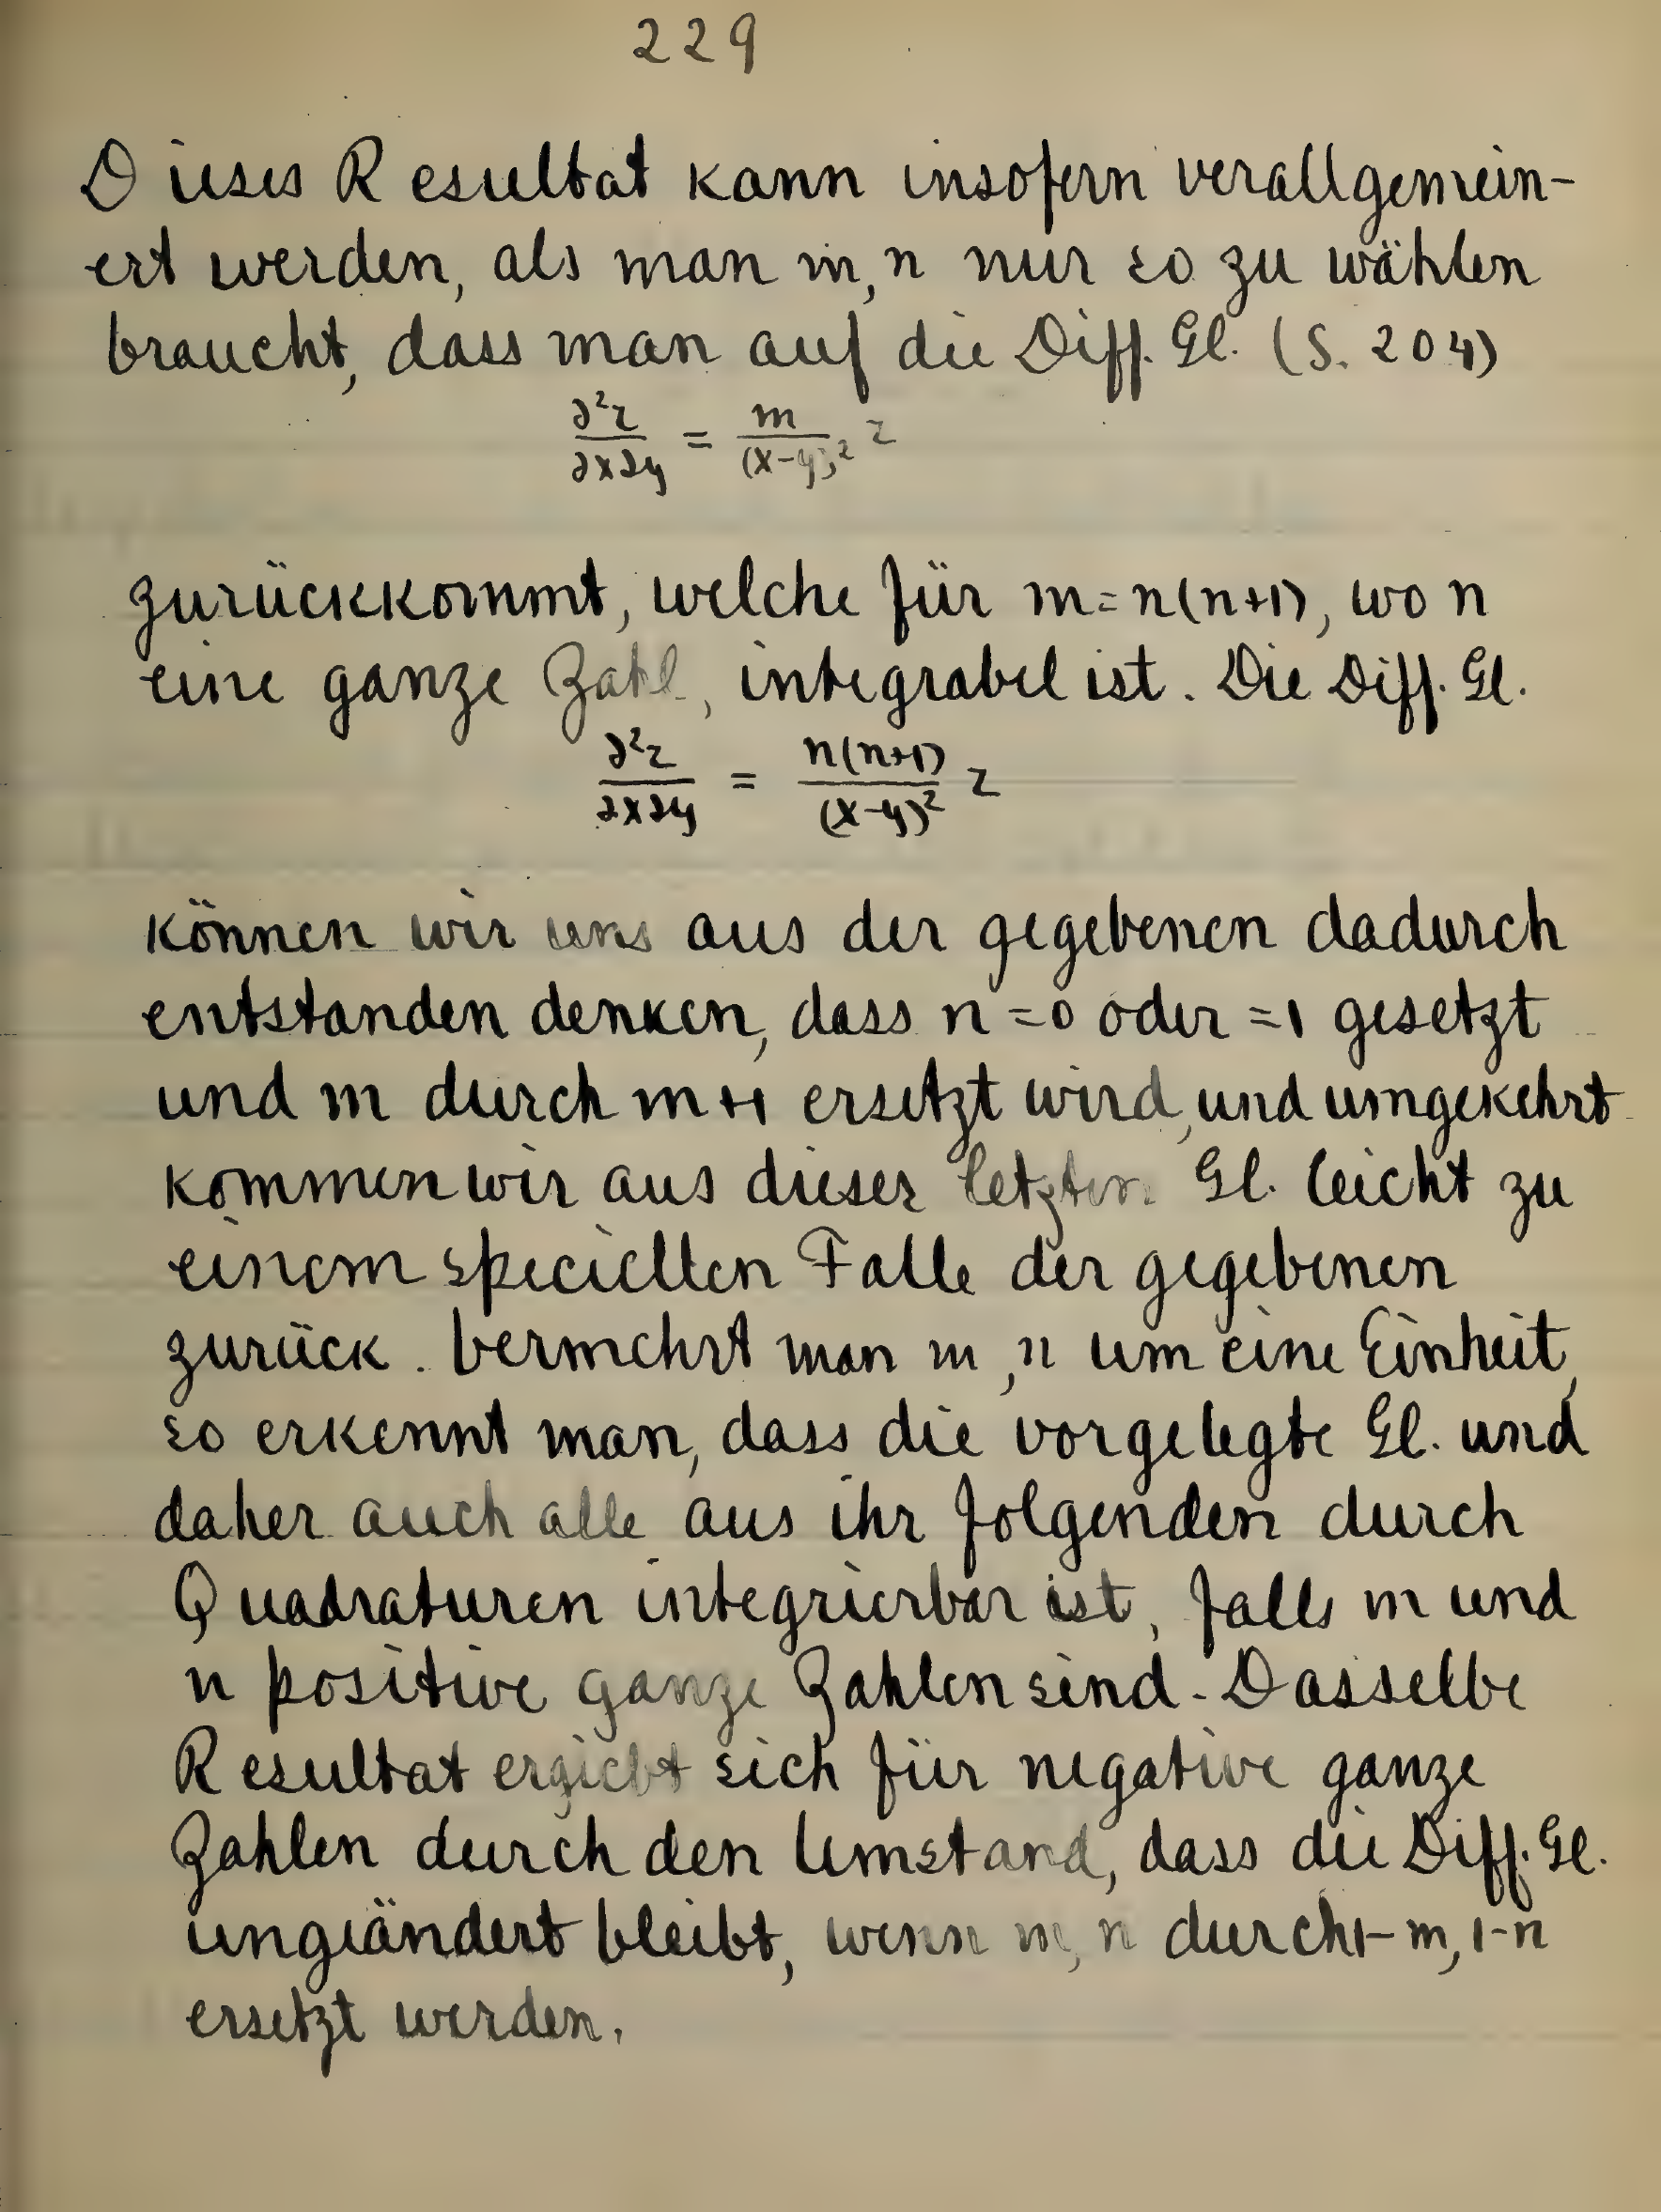 229
Dieses Resultat kann insofern verallgemein-
ert werden, als man m, n nur so zu wählen
braucht, dass man auf die Diff. Gl. (S. 204)
∂²z/∂x∂y = m/(x-y)² z
zurückkommt, welche für m=n(n+1), wo n
eine ganze Zahl, integrabel ist. Die Diff. Gl.
∂²z/∂x∂y = n(n+1)/(x-y)² z
können wir uns aus der gegebenen dadurch
entstanden denken, dass n=0 oder =1 gesetzt
und m durch m+1 ersetzt wird, und umgekehrt
kommen wir aus dieser letzten Gl. leicht zu
einem speciellen Falle der gegebenen
zurück. Vermehrt man m, n um eine Einheit,
so erkennt man, dass die vorgelegte Gl. und
daher auch alle aus ihr folgenden durch
Quadraturen integrierbar ist, falls m und
n positive ganze Zahlen sind. Dasselbe
Resultat ergiebt sich für negative ganze
Zahlen durch den Umstand, dass die Diff. Gl.
ungeändert bleibt, wenn m, n durch 1-m, 1-n
ersetzt werden.